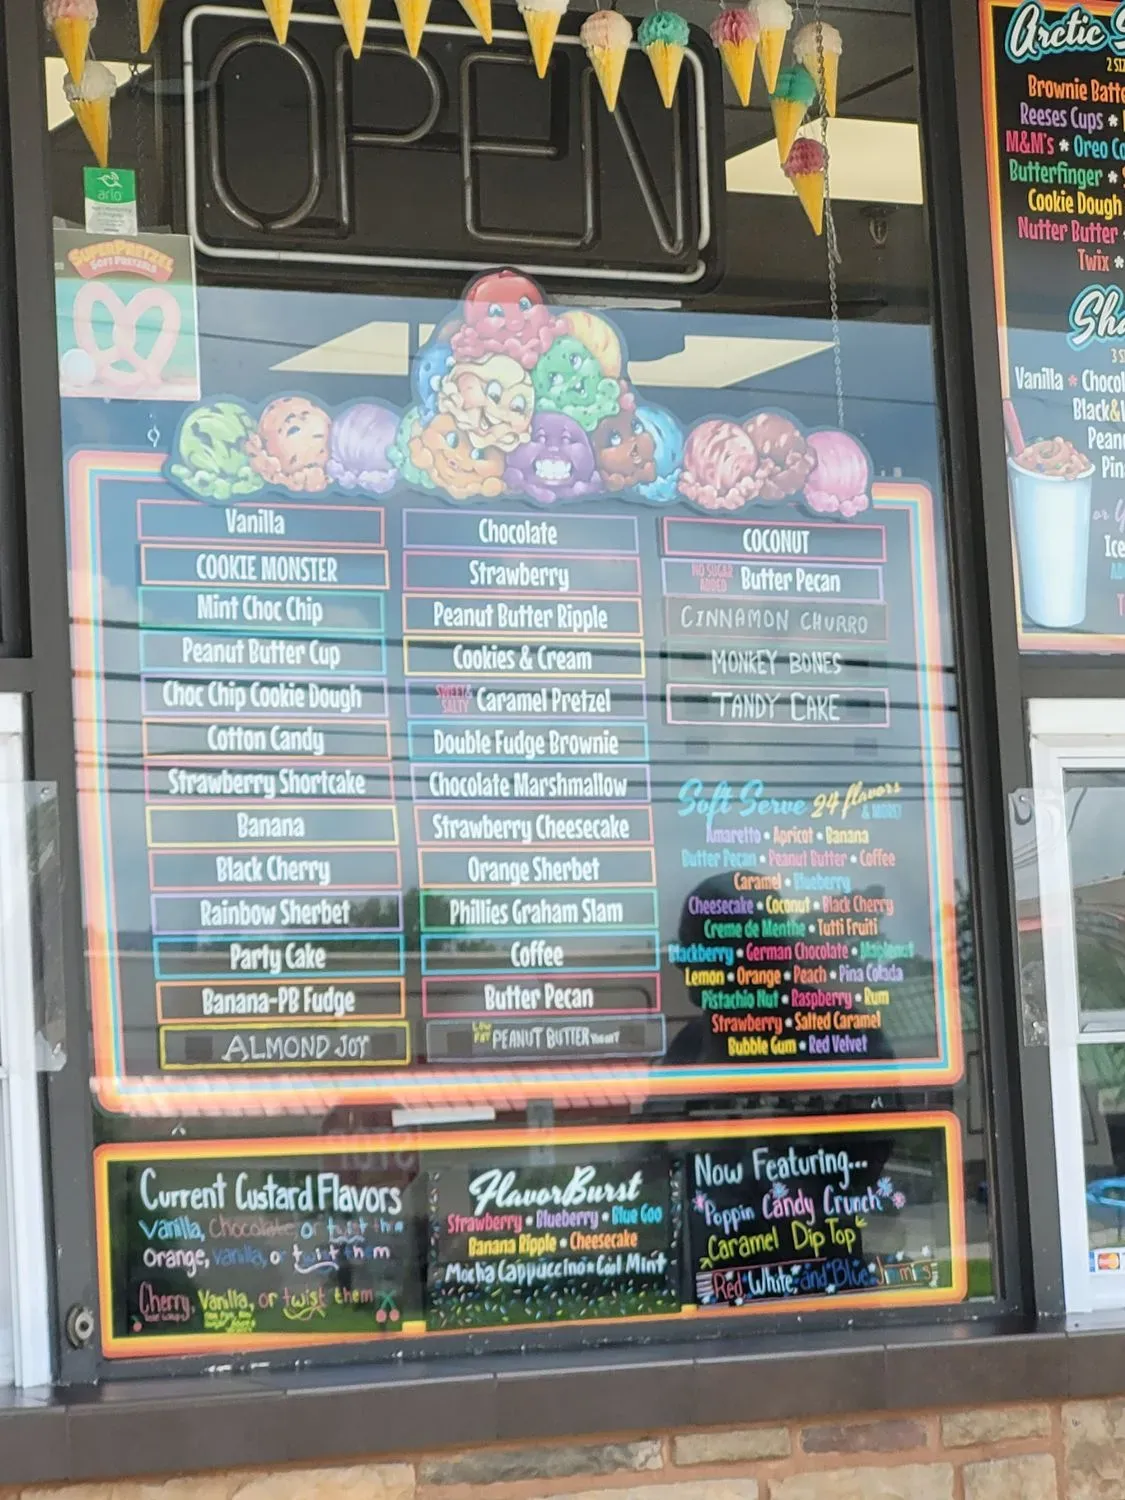 OPEN
arlo
SUPERPRETZEL
SOFT PRETZELS
Vanilla
COOKIE MONSTER
Mint Choc Chip
Peanut Butter Cup
Choc Chip Cookie Dough
Cotton Candy
Strawberry Shortcake
Banana
Black Cherry
Rainbow Sherbet
Party Cake
Banana-PB Fudge
ALMOND JOY
Chocolate
Strawberry
Peanut Butter Ripple
Cookies & Cream
SWEET & SALTY Caramel Pretzel
Double Fudge Brownie
Chocolate Marshmallow
Strawberry Cheesecake
Orange Sherbet
Phillies Graham Slam
Coffee
Butter Pecan
LOW FAT PEANUT BUTTER YOGURT
COCONUT
NO SUGAR ADDED Butter Pecan
CINNAMON CHURRO
MONKEY BONES
TANDY CAKE
Soft Serve 24 flavors
& MORE!
Amaretto • Apricot • Banana
Butter Pecan • Peanut Butter • Coffee
Caramel • Blueberry
Cheesecake • Coconut • Black Cherry
Creme de Menthe • Tutti Fruiti
Blackberry • German Chocolate • Maplenut
Lemon • Orange • Peach • Pina Colada
Pistachio Nut • Raspberry • Rum
Strawberry • Salted Caramel
Bubble Gum • Red Velvet
Current Custard Flavors
Vanilla, Chocolate, or twist them
Orange, vanilla, or twist them
Cherry, Vanilla, or twist them
FlavorBurst
Strawberry • Blueberry • Blue Goo
Banana Ripple • Cheesecake
Mocha Cappuccino • Cool Mint
Now Featuring...
Poppin Candy Crunch
Caramel Dip Top
Red, White, and Blue Jimmies
Arctic
Brownie Batte
Reeses Cups *
M&M's * Oreo Co
Butterfinger *
Cookie Dough
Nutter Butter
Twix *
Sha
Vanilla * Chocol
Black&
Pean
Pin
or
Ice